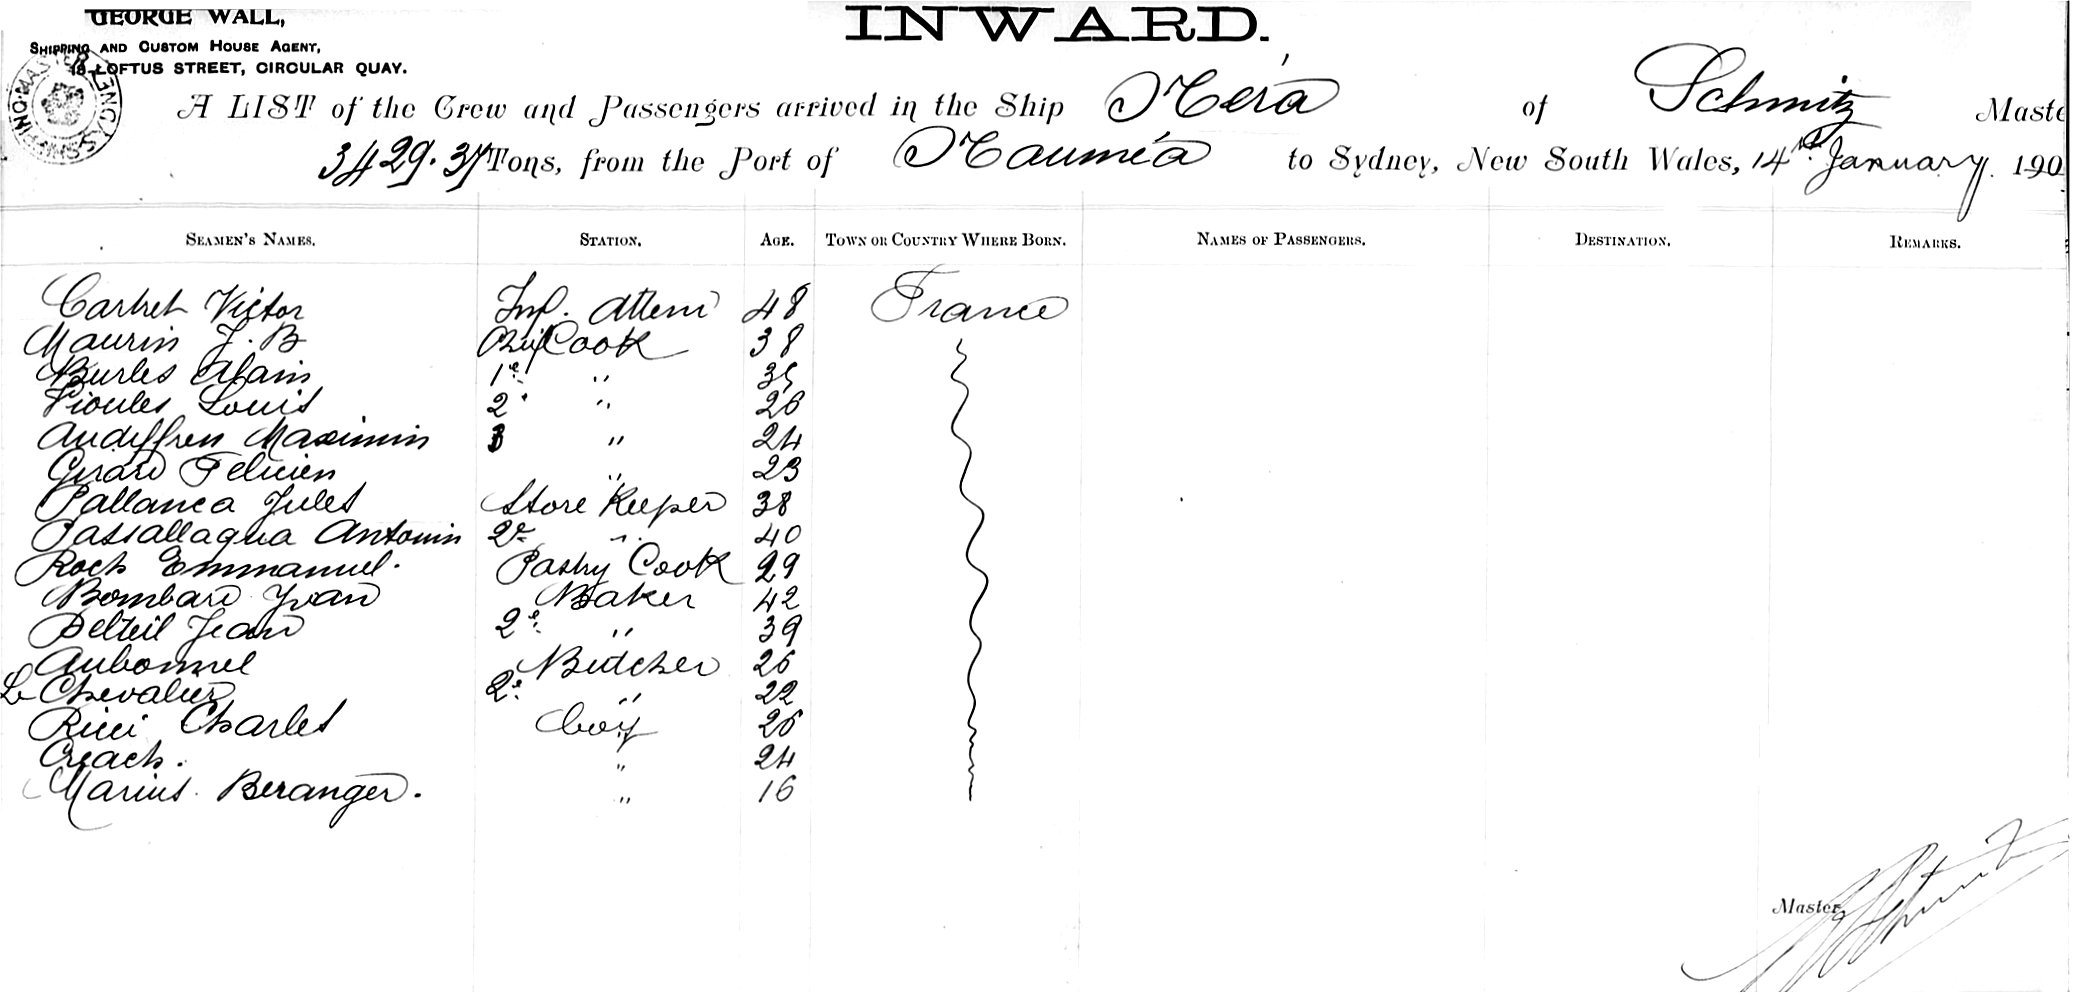 GEORGE WALL,
INWARD.
SHIPPING AND CUSTOM HOUSE AGENT,
LOFTUS STREET, CIRCULAR QUAY.
A LIST of the Crew and Passengers arrived in the Ship Néra of Schmitz Maste
3429.37 Tons, from the Port of Nouméa to Sydney, New South Wales, 14th January 190
SEAMEN'S NAMES. STATION. AGE. TOWN OR COUNTRY WHERE BORN. NAMES OF PASSENGERS. DESTINATION. REMARKS.
Victor Inf. Attent 48 France
Maurin J. B Chief Cook 38
Burles Alain 1e " 35
Pioules Louis 2 " 26
Audiffren Maximin 3 " 24
Girard Felicien " 23
Pallanca Jules Store Keeper 38
Passallaqua Antonin 2e " 40
Roch Emmanuel. Pastry Cook 29
Bombard Yvan Baker 42
Delteil Jean 2e " 39
Aubonnel Butcher 26
Le Chevalier 2e " 22
Ricci Charles boy 26
Creach. " 24
Marius Beranger. " 16
Master